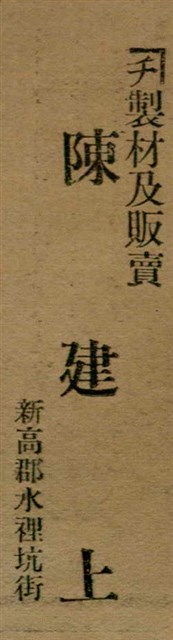 チ製材及販賣
陳建上
新高郡水裡坑街